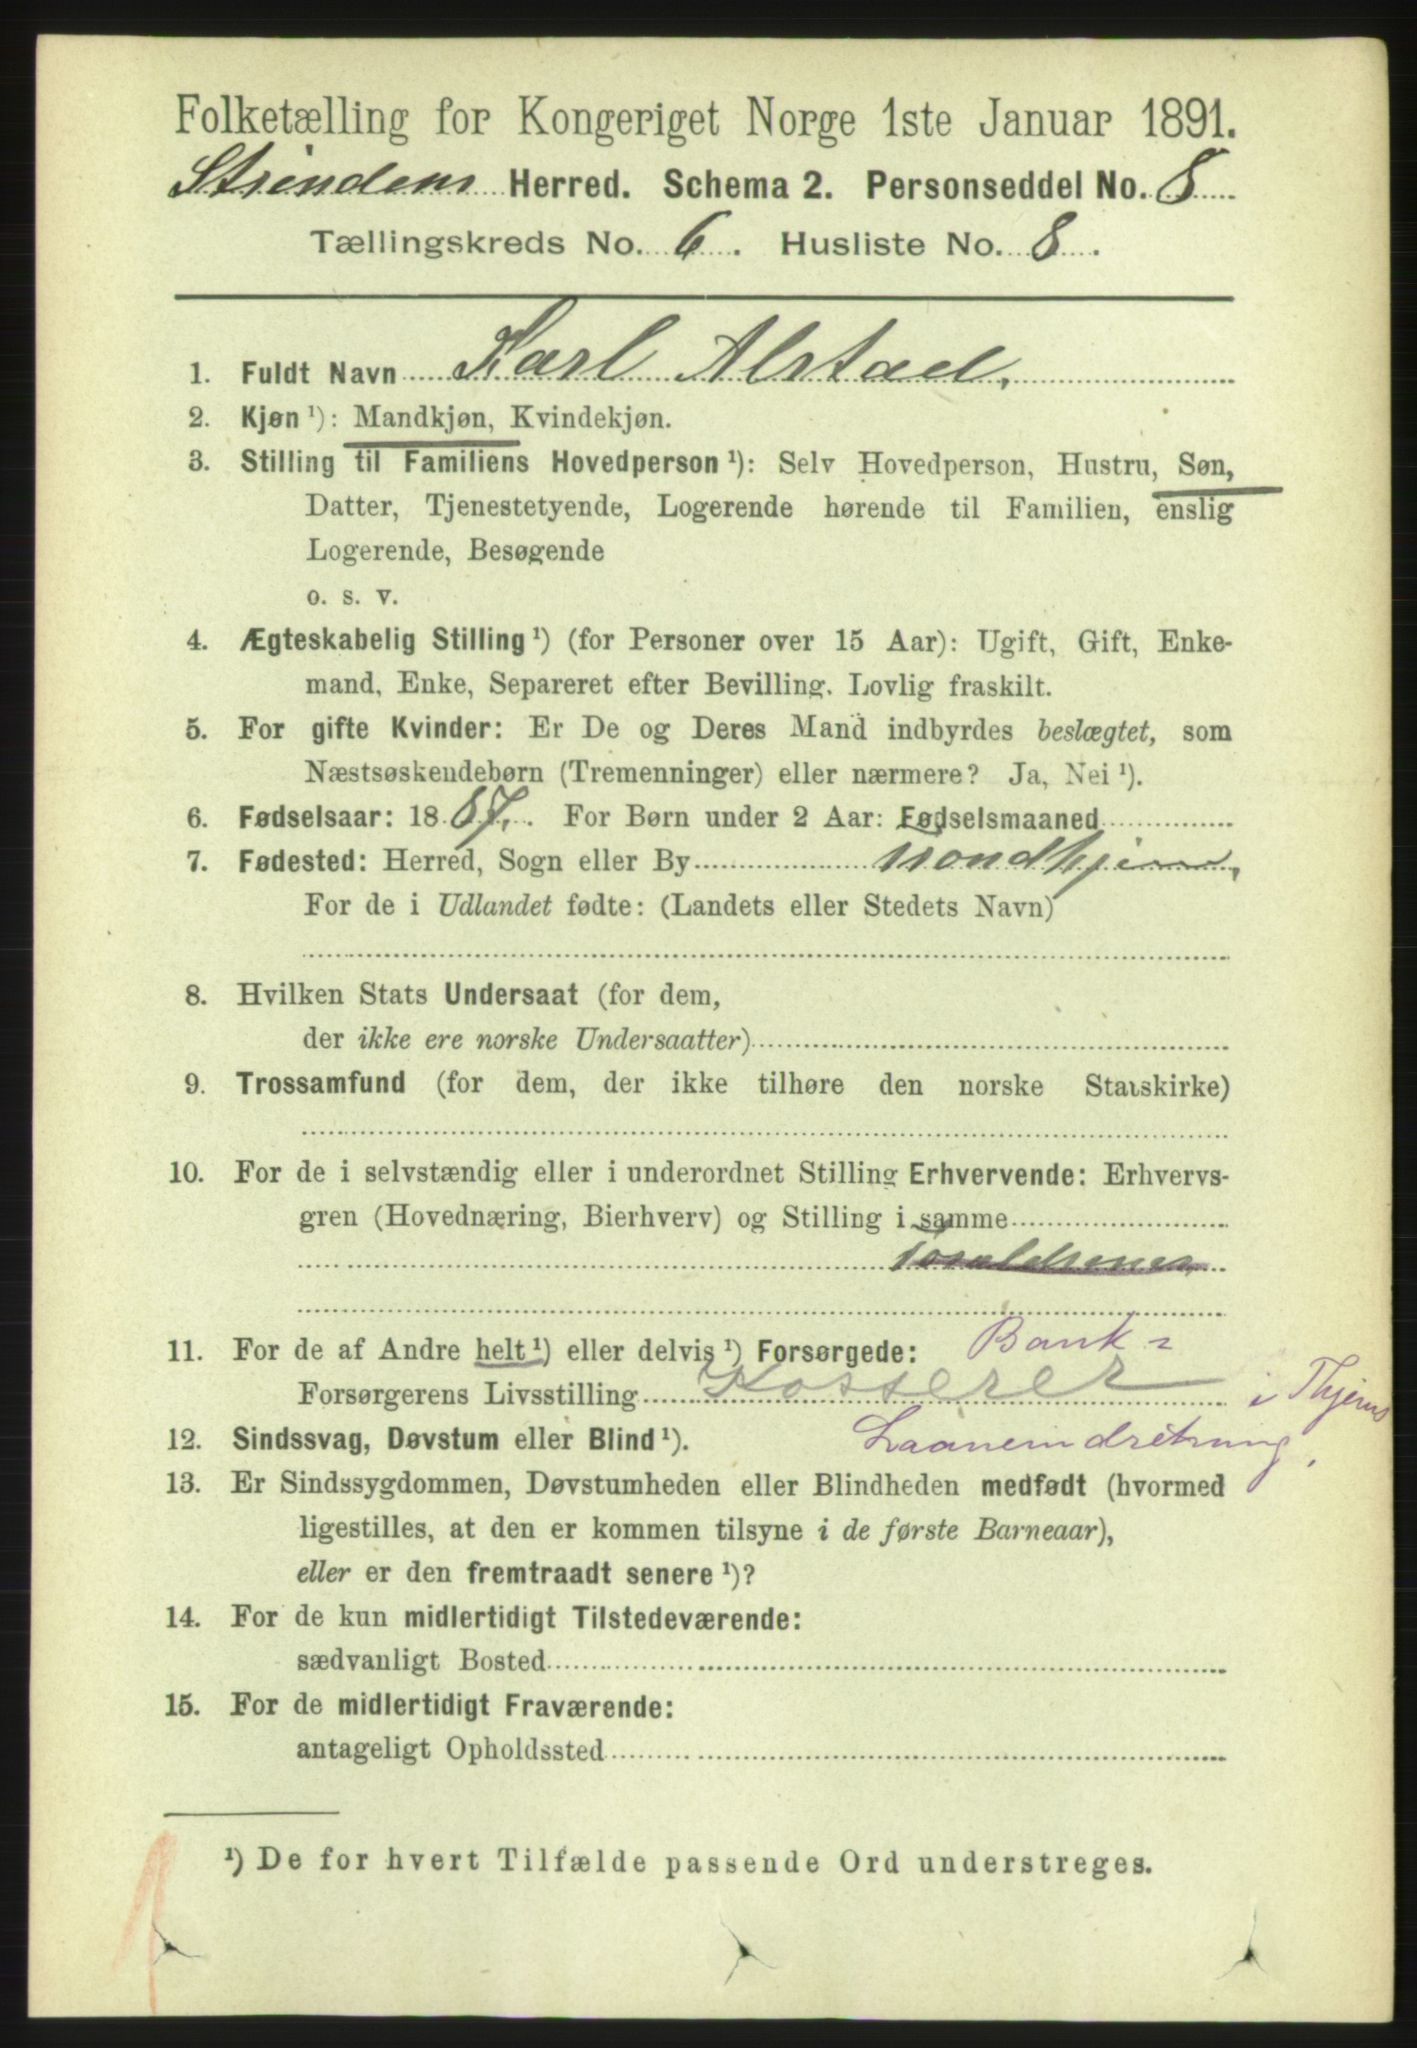 Folketælling for Kongeriget Norge 1ste Januar 1891.
Strinden Herred. Schema 2. Personseddel No. 8
Tællingskreds No. 6. Husliste No. 8.
1. Fuldt Navn Karl Alstad.
2. Kjøn ¹): Mandkjøn, Kvindekjøn.
3. Stilling til Familiens Hovedperson ¹): Selv Hovedperson, Hustru, Søn,
Datter, Tjenestetyende, Logerende hørende til Familien, enslig
Logerende, Besøgende
o. s. v.
4. Ægteskabelig Stilling ¹) (for Personer over 15 Aar): Ugift, Gift, Enke-
mand, Enke, Separeret efter Bevilling. Lovlig fraskilt.
5. For gifte Kvinder: Er De og Deres Mand indbyrdes beslægtet, som
Næstsøskendebørn (Tremenninger) eller nærmere? Ja, Nei ¹).
6. Fødselsaar: 1887. For Børn under 2 Aar: Fødselsmaaned
7. Fødested: Herred, Sogn eller By Trondhjem,
For de i Udlandet fødte: (Landets eller Stedets Navn)
8. Hvilken Stats Undersaat (for dem,
der ikke ere norske Undersaatter)
9. Trossamfund (for dem, der ikke tilhøre den norske Statskirke)
10. For de i selvstændig eller i underordnet Stilling Erhvervende: Erhvervs-
gren (Hovednæring, Bierhverv) og Stilling i samme
11. For de af Andre helt ¹) eller delvis ¹) Forsørgede: Bank-
Forsørgerens Livsstilling Kasserer i Thjems
Laaneindretning.
12. Sindssvag, Døvstum eller Blind ¹).
13. Er Sindssygdommen, Døvstumheden eller Blindheden medfødt (hvormed
ligestilles, at den er kommen tilsyne i de første Barneaar),
eller er den fremtraadt senere ¹)?
14. For de kun midlertidigt Tilstedeværende:
sædvanligt Bosted
15. For de midlertidigt Fraværende:
antageligt Opholdssted
¹) De for hvert Tilfælde passende Ord understreges.